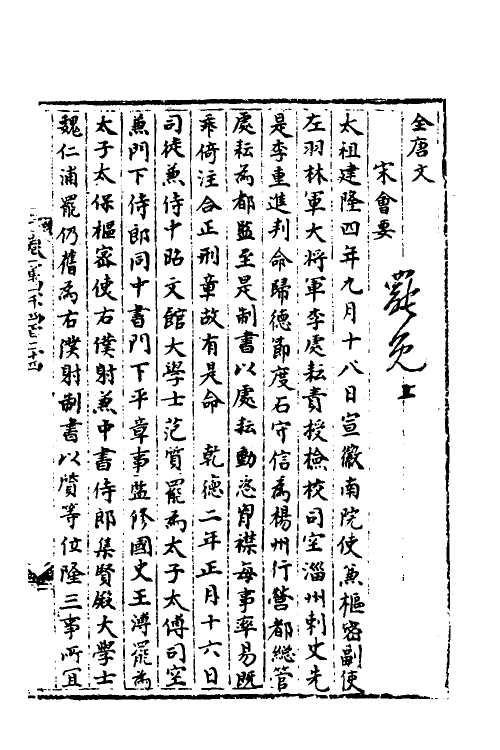 全唐文
宋會要　罷免上
太祖建隆四年九月十八日宣徽南院使兼樞密副使
左羽林軍大將軍李處耘責授檢校司空淄州刺史先
是李重進判命歸德節度石守信為楊州行營都總管
處耘為都監至是制書以處耘動恣胷襟每事率易既
乖倚注合正刑章故有是命　乾德二年正月十六日
司徒兼侍中昭文館大學士范質罷為太子太傅司空
兼門下侍郎同中書門下平章事監修國史王溥罷為
太子太保樞密使右僕射兼中書侍郎集賢殿大學士
魏仁浦罷仍舊為右僕射制書以質等位隆三事所宜